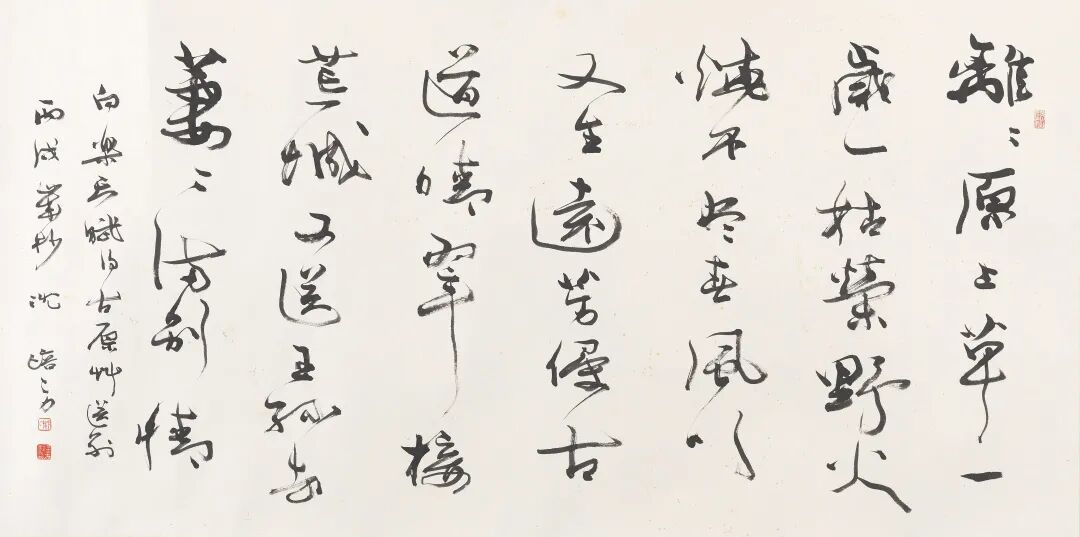 離〻原上草一
歲一枯榮野火
燒不尽春風吹
又生遠芳侵古
道晴翠接
荒城又送王孫去
萋〻滿別情
白樂天賦得古原艸送別
丙戌杪沈培方